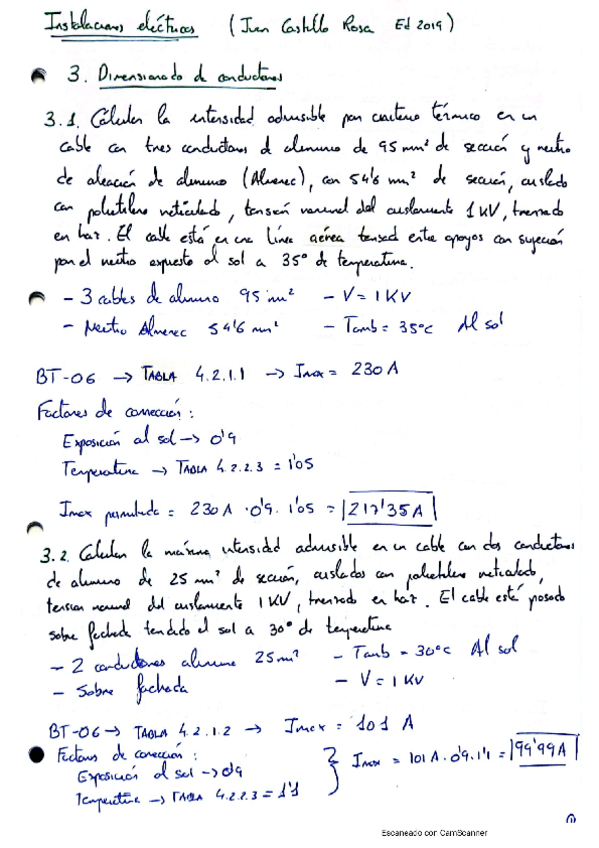 Instalaciones eléctricas (Juan Castillo Rosa Ed 2019)
3. Dimensionado de conductores
3.1. Calcular la intensidad admisible por criterio térmico en un
cable con tres conductores de aluminio de 95 mm² de sección y neutro
de aleación de aluminio (Almelec), con 54'6 mm² de sección, aislado
con polietileno reticulado, tensión nominal del aislamiento 1 KV, trenzado
en haz. El cable está en una línea aérea tensad entre apoyos con sujeción
por el neutro expuesto al sol a 35° de temperatura.
- 3 cables de aluminio 95 mm² - V = 1 KV
- Neutro Almelec 54'6 mm² - Tamb = 35°C Al sol
BT-06 → TABLA 4.2.1.1 → Imax = 230 A
Factores de corrección:
Exposición al sol → 0'9
Temperatura → TABLA 4.2.2.3 = 1'05
Imax permitida = 230 A · 0'9 · 1'05 = 217'35 A
3.2. Calcular la máxima intensidad admisible en un cable con dos conductores
de aluminio de 25 mm² de sección, aislados con polietileno reticulado,
tensión nominal del aislamiento 1 KV, trenzado en haz. El cable está posado
sobre fachada tendido al sol a 30° de temperatura
- 2 conductores aluminio 25 mm² - Tamb = 30°C Al sol
- Sobre fachada - V = 1 KV
BT-06 → TABLA 4.2.1.2 → Imax = 101 A
Factores de corrección:
Exposición al sol → 0'9
Temperatura → TABLA 4.2.2.3 = 1'1
Imax = 101 A · 0'9 · 1'1 = 99'99 A
①
Escaneado con CamScanner